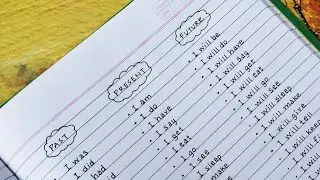 PAST
I was
I did
had
PRESENT
· I am
· I do
· I have
· I say
· I get
· I eat
· I go
· I see
sleep
make
FUTURE
· I will be
· I will do
· I will have
· I will say
· I will get
· I will eat
· I will go
· I will see
· I will sleep
· I will make
· I will give
· I will tell
I will keep
I will